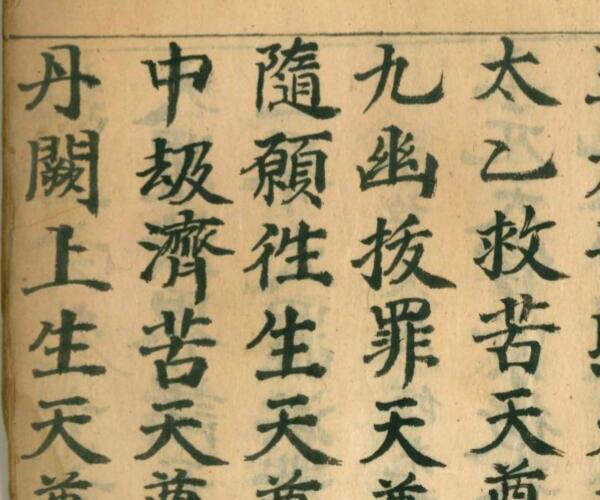 太乙救苦天尊
九幽拔罪天尊
隨願徃生天尊
中刼濟苦天尊
丹闕上生天尊